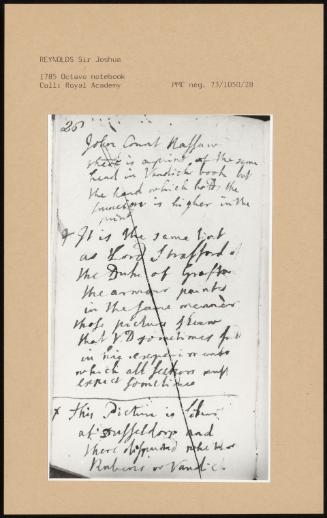 REYNOLDS Sir Joshua
1785 Octavo notebook
Coll: Royal Academy
PMC neg. 73/1050/28
26
John Count Nassaw
there is a print of the same
head in Vandick book but
the hand which holds the
is higher in the
print
x It is the same tint
as Lord Strafford of
the Duke of Grafton
the armour painted
in the same manner
those pictures shew
that V D sometimes
in his experiments
which all seekers must
expect sometimes
x This Picture is
at Dusseldorp and
there whether
Rubens or Vandick